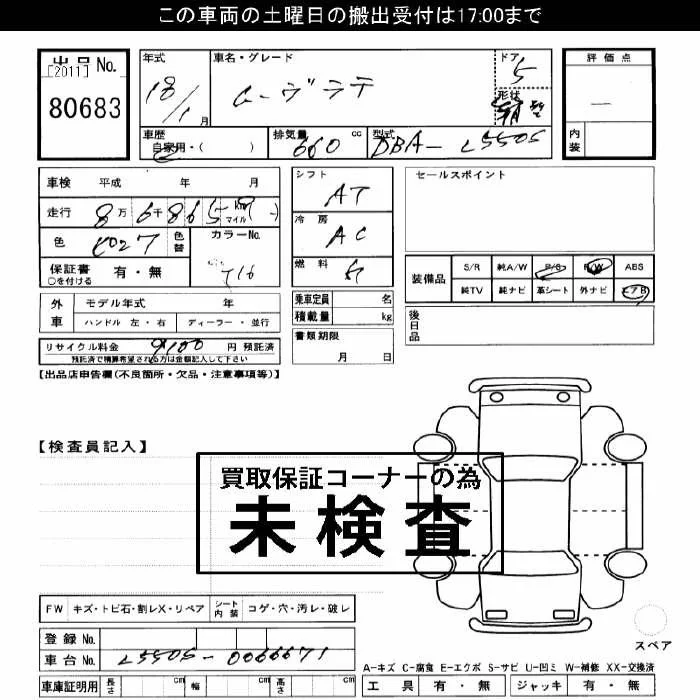 この車両の土曜日の搬出受付は17:00まで
出品No.
[2011]
80683
年式
18/1月
車名・グレード
ムーヴラテ
ドア
5
形状
評価点
—
内装
車歴
自家用・( )
排気量
660 cc
型式
DBA-L550S
車検 平成 年 月
走行 8万6千865 km マイル
色
色替
カラーNo.
T16
保証書 有・無
○を付ける
シフト
AT
冷房
AC
燃料
セールスポイント
装備品
S/R 純A/W P/S P/W ABS
純TV 純ナビ 革シート 外ナビ エアB
外車
モデル年式 年
ハンドル 左・右 ディーラー・並行
乗車定員 名
積載量 kg
後日品
リサイクル料金 9100 円 預託済
預託済で精算希望される方は金額記入して下さい
書類期限
月 日
【出品店申告欄(不良箇所・欠品・注意事項等)】
【検査員記入】
買取保証コーナーの為
未検査
FW キズ・トビ石・割レX・リペア シート内装 コゲ・穴・汚レ・破レ
登録No.
車台No. L550S-0066671
スペア
A-キズ C-腐食 E-エクボ S-サビ U-凹ミ W-補修 XX-交換済
車庫証明用 長さ cm 幅 cm 高さ cm
工具 有・無 ジャッキ 有・無